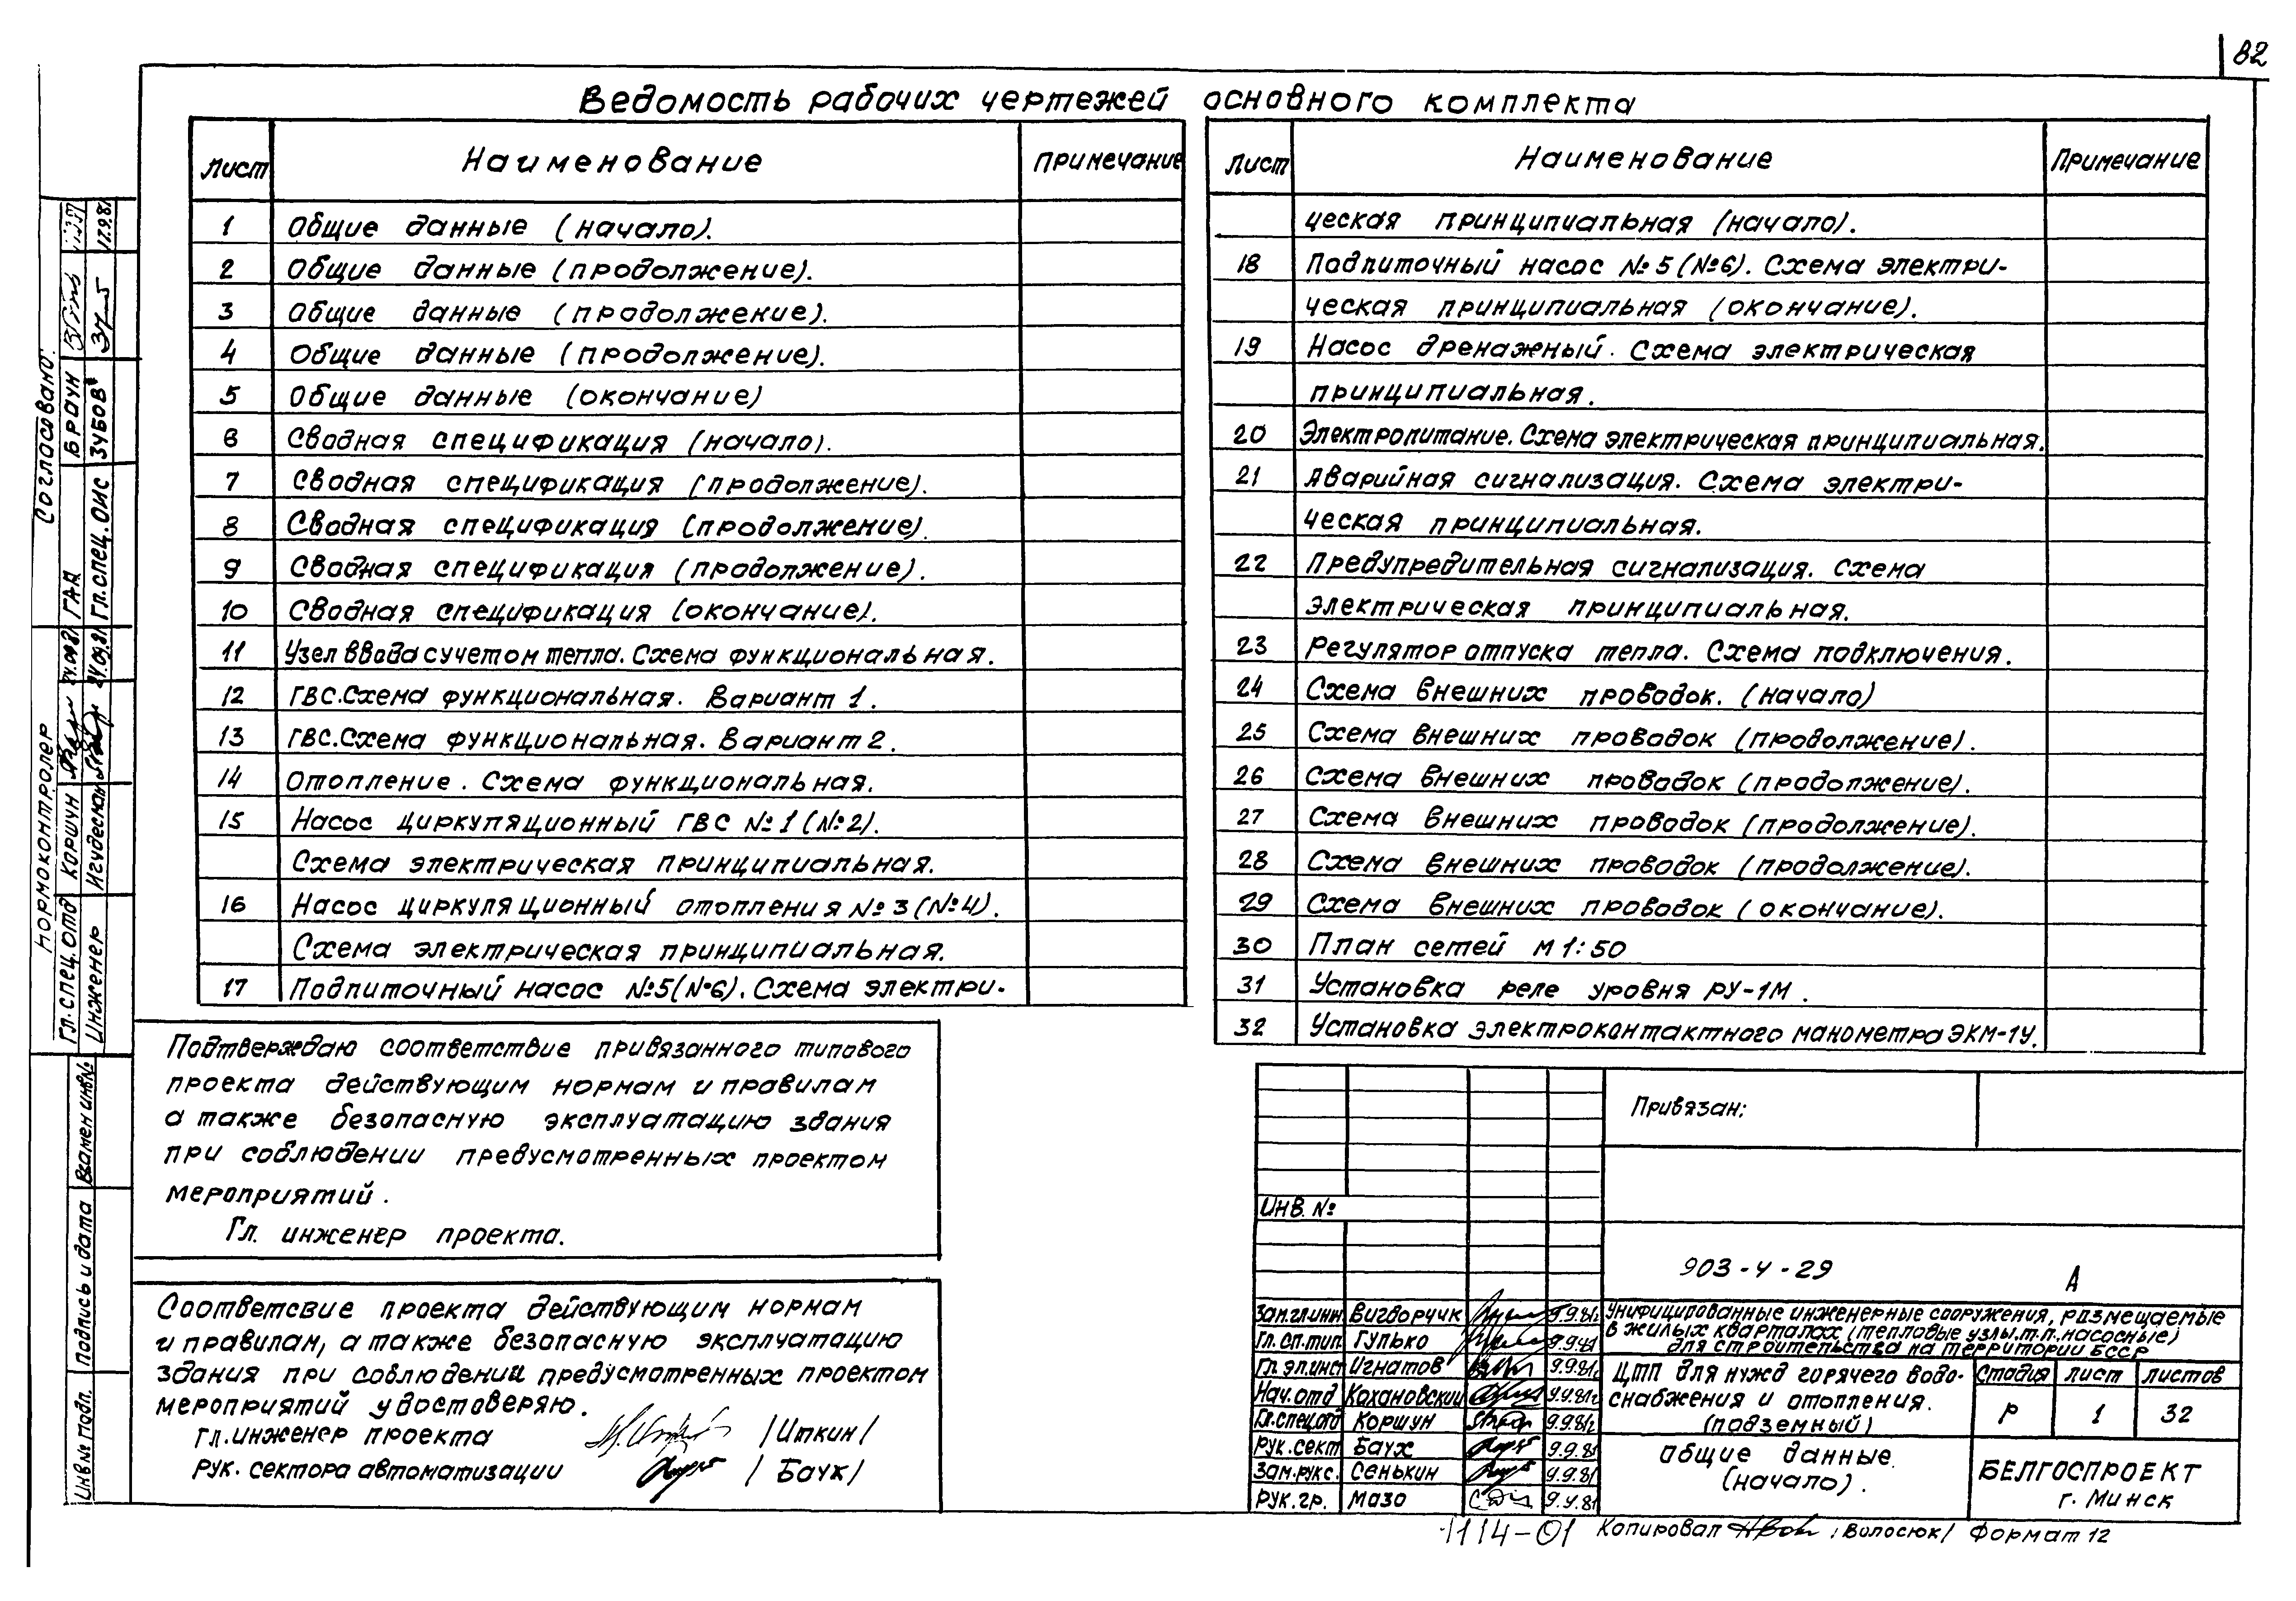 82
Ведомость рабочих чертежей основного комплекта
Лист Наименование Примечание
1 Общие данные (начало).
2 Общие данные (продолжение).
3 Общие данные (продолжение).
4 Общие данные (продолжение).
5 Общие данные (окончание)
6 Сводная спецификация (начало).
7 Сводная спецификация (продолжение).
8 Сводная спецификация (продолжение).
9 Сводная спецификация (продолжение).
10 Сводная спецификация (окончание).
11 Узел ввода с учетом тепла. Схема функциональная.
12 ГВС. Схема функциональная. Вариант 1.
13 ГВС. Схема функциональная. Вариант 2.
14 Отопление. Схема функциональная.
15 Насос циркуляционный ГВС №1 (№2).
Схема электрическая принципиальная.
16 Насос циркуляционный отопления №3 (№4).
Схема электрическая принципиальная.
17 Подпиточный насос №5 (№6). Схема электри-
Лист Наименование Примечание
ческая принципиальная (начало).
18 Подпиточный насос №5 (№6). Схема электри-
ческая принципиальная (окончание).
19 Насос дренажный. Схема электрическая
принципиальная.
20 Электропитание. Схема электрическая принципиальная.
21 Аварийная сигнализация. Схема электри-
ческая принципиальная.
22 Предупредительная сигнализация. Схема
электрическая принципиальная.
23 Регулятор отпуска тепла. Схема подключения.
24 Схема внешних проводок. (начало)
25 Схема внешних проводок (продолжение).
26 Схема внешних проводок (продолжение).
27 Схема внешних проводок (продолжение).
28 Схема внешних проводок (продолжение).
29 Схема внешних проводок (окончание).
30 План сетей М 1:50
31 Установка реле уровня РУ-1М.
32 Установка электроконтактного манометра ЭКМ-1У.
Подтверждаю соответствие привязанного типового
проекта действующим нормам и правилам
а также безопасную эксплуатацию здания
при соблюдении предусмотренных проектом
мероприятий.
Гл. инженер проекта.
Соответсвие проекта действующим нормам
и правилам, а также безопасную эксплуатацию
здания при соблюдении предусмотренных проектом
мероприятий удостоверяю.
Гл. инженер проекта /Иткин/
Рук. сектора автоматизации /Баух/
Согласовано:
ГАП Браун
Гл. спец. ОИС Зубов 17.9.81
Нормоконтролер
Гл. спец. отд Коршун 24.09.81
Инженер 24.09.81
Взамен инв №
Подпись и дата
Инв № подл.
Привязан:
Инв. №
903-4-29 А
Зам.гл.инж Вигдорчик 9.9.81г
Гл.сп.тип. Гулько 9.9.81
Гл.эл.инст Игнатов 9.9.81г
Нач.отд Кохановский 9.9.81г
Гл.спец.отд Коршун 9.9.81г
Рук.сект Баух 9.9.81
Зам.рук.с. Сенькин 9.9.81
Рук.гр. Мазо 9.9.81
Унифицированные инженерные сооружения, размещаемые
в жилых кварталах (тепловые узлы, т.п. насосные)
для строительства на территории БССР
ЦТП для нужд горячего водо-
снабжения и отопления.
(подземный)
Стадия Лист Листов
Р 1 32
Общие данные.
(начало).
БЕЛГОСПРОЕКТ
г. Минск
1114-01 Копировал /Волосюк/ Формат 12